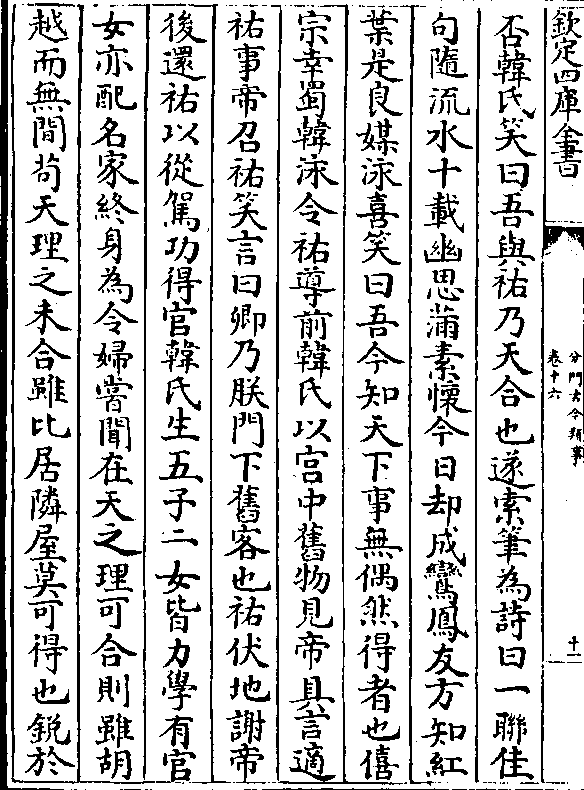 欽定四庫全書
分門古今類事
卷十六
十一
否韓氏笑曰吾與祐乃天合也遂索筆為詩曰一聯佳
句隨流水十載幽思滿素懷今日却成鸞鳳友方知紅
葉是良媒泳喜笑曰吾今知天下事無偶然得者也僖
宗幸蜀韓泳令祐導前韓氏以宫中舊物見帝具言適
祐事帝召祐笑言曰卿乃朕門下舊客也祐伏地謝帝
後還祐以從駕功得官韓氏生五子二女皆力學有官
女亦配名家終身為令婦嘗聞在天之理可合則雖胡
越而無間茍天理之未合雖比居隣屋莫可得也銳於